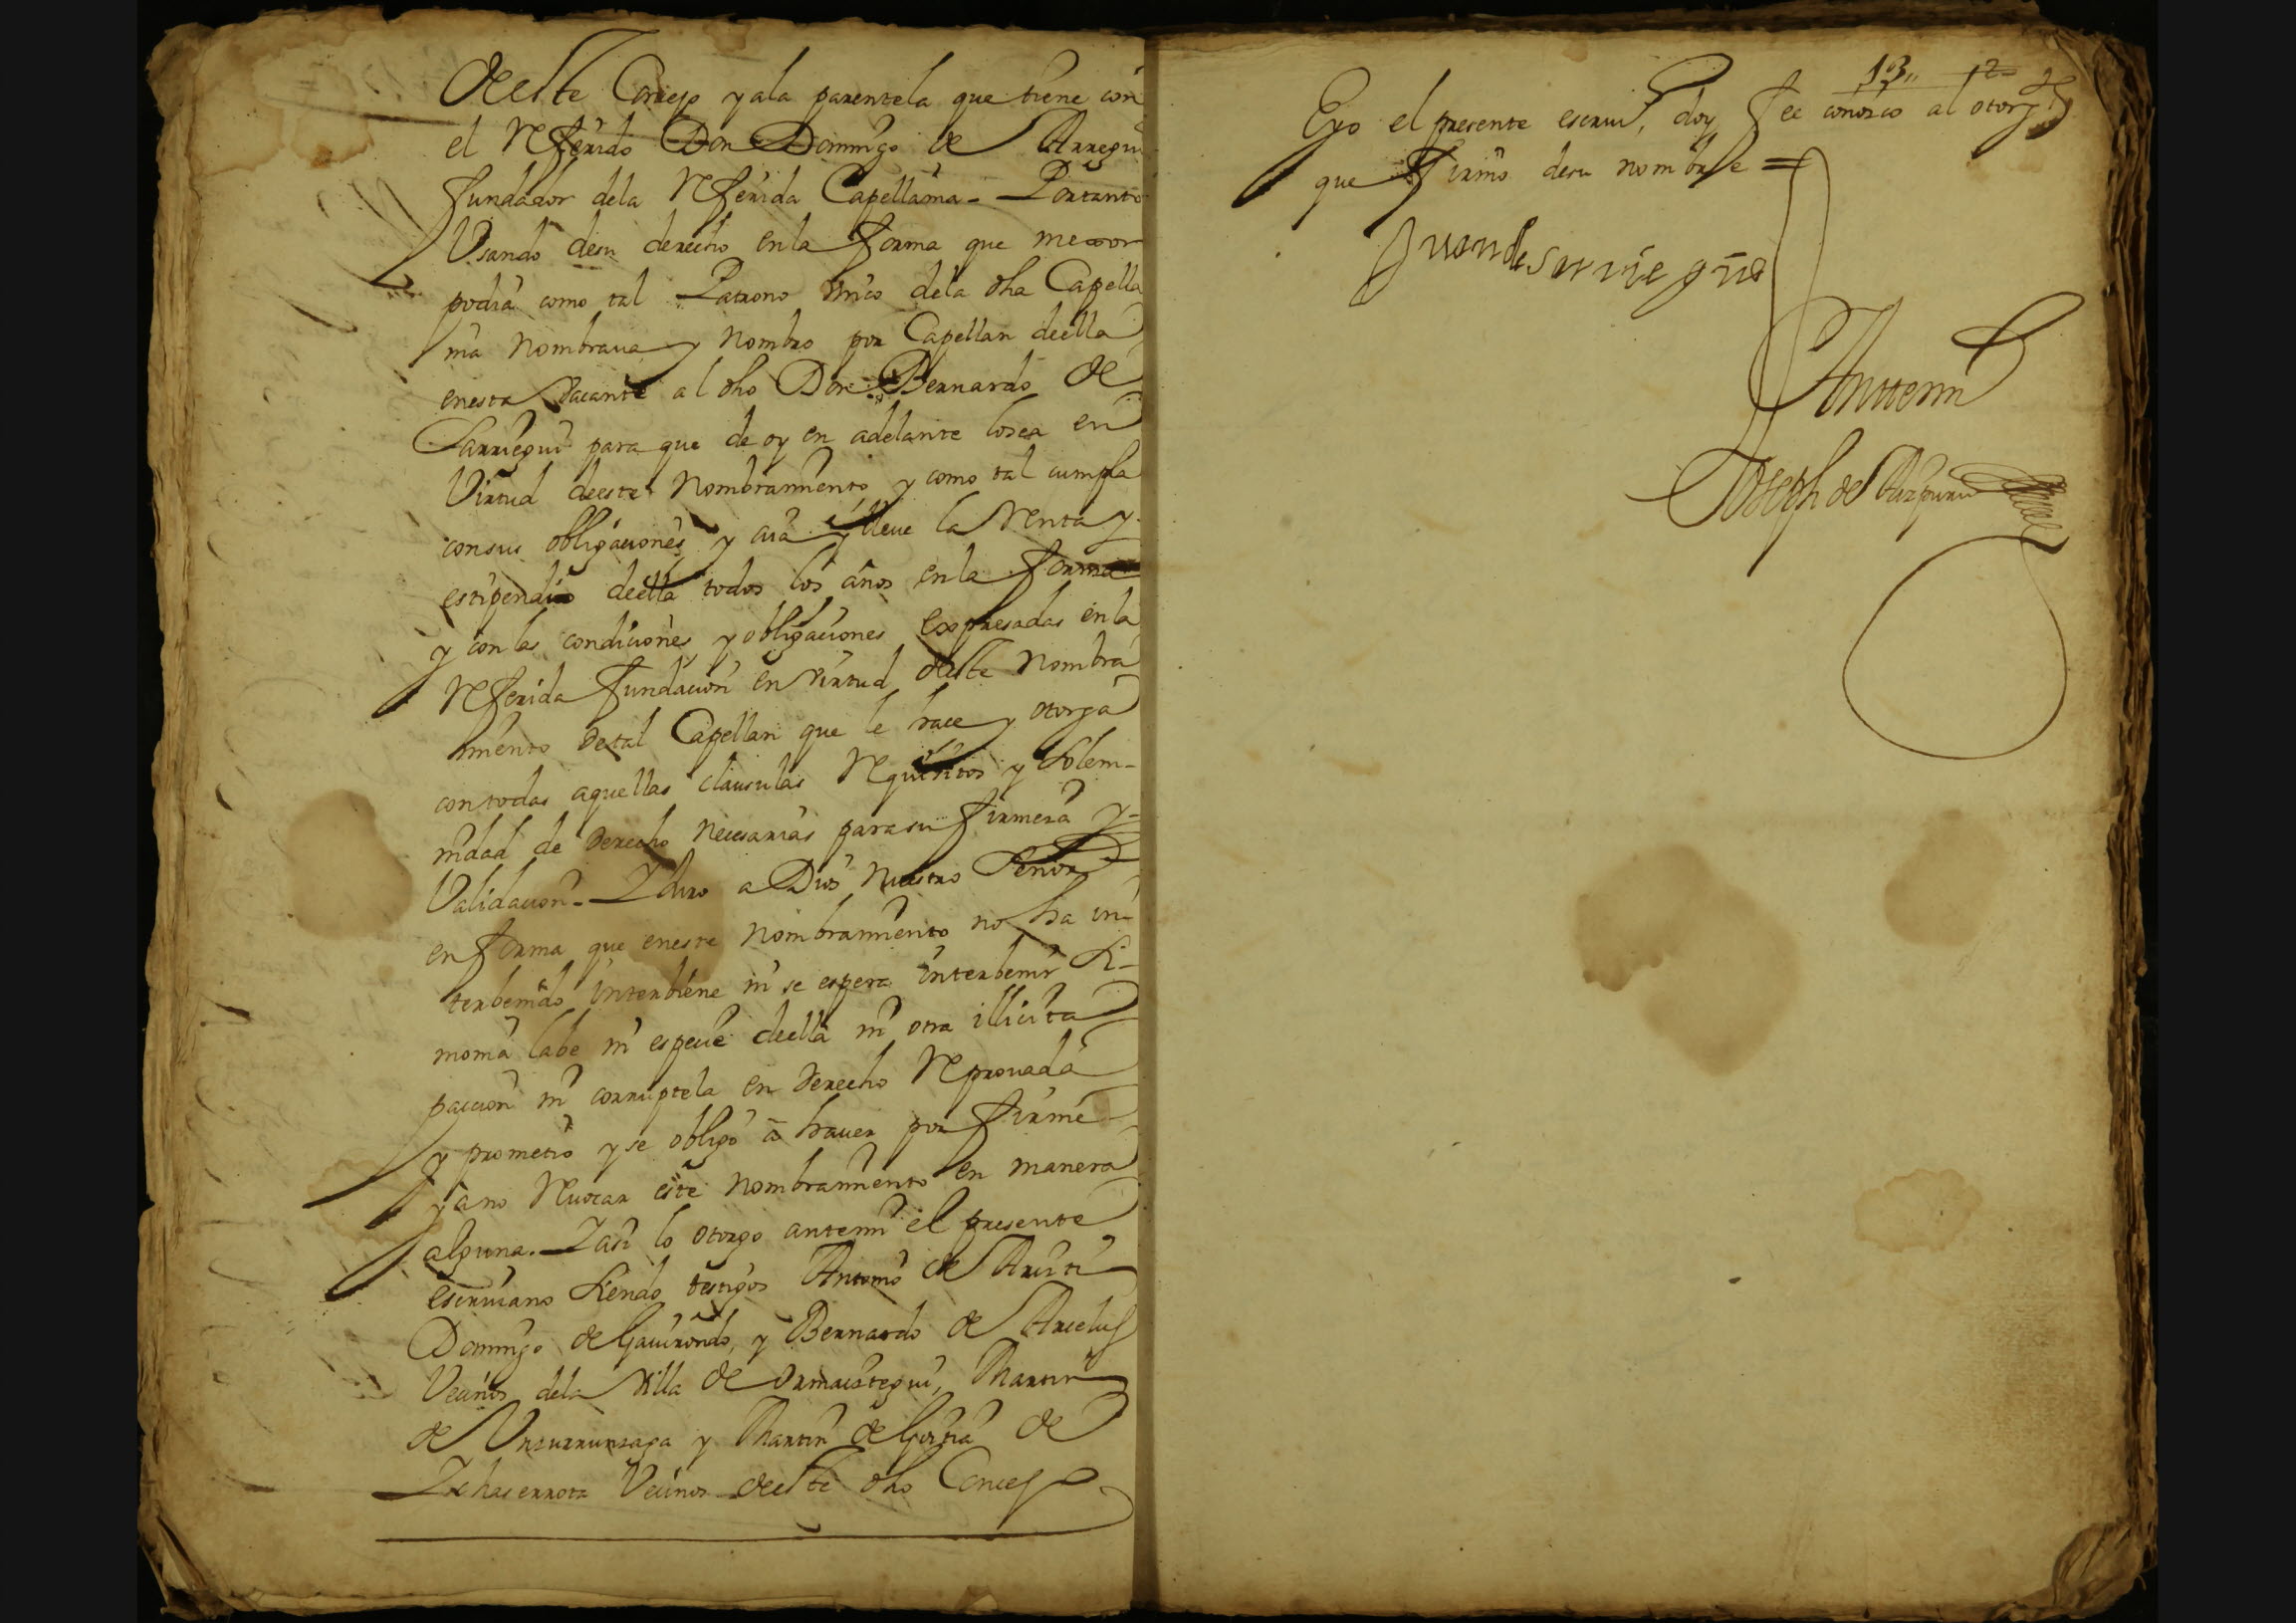 deeste Concejo y ala parentela que tiene con
el Referido Don Domingo de Arregui
fundador dela Referida Capellania - Portanto
Usando desu derecho enla forma que mexor
podia como tal Patrono unico dela dha Capella
nia Nombraua y Nombro por Capellan deella
enesta Vacante al dho Don Bernardo de
Sarriegui para que de oy en adelante losea en
Virtud deeste Nombramiento y como tal cumpla
consus obligaciones y aia y lleue la Renta y
estipendio deella todos los años enla forma
y con las condiciones y obligaciones expresadas enla
Referida fundacion en virtud deeste Nombra
miento de tal Capellan que le hace y otorga
contodas aquellas clausulas Requisitos y Solem-
nidad de derecho necesarias parasu firmeza y-
Validacion - Y Juro a Dios nuestro Señor
en forma que eneste nombramiento no ha in-
terbenido interbiene ni se espera interbenir Si-
monia labe ni especie deella ni otra illicita
paccion ni corruptela en derecho Reprouada
y prometio y se obligo a hauer por firme
y ano Reuocar este nombramiento en manera
alguna. Y asi lo otorgo antemi el presente
escriuano siendo testigos Antonio de Aristi
Domingo de Gauirondo, y Bernardo de Arcelus
Vecinos dela Villa de Ormaiztegui, Martin
de Unzurrunzaga y Martin de Gorria de
Echaserrota Vecinos deeste dho Concejo
13,, 12
Eyo el presente escriuº, doy fee conozco al otorgte
que firmo desu nombre =
Juan de sarriegui
Antemi
Joseph de Aizpuru